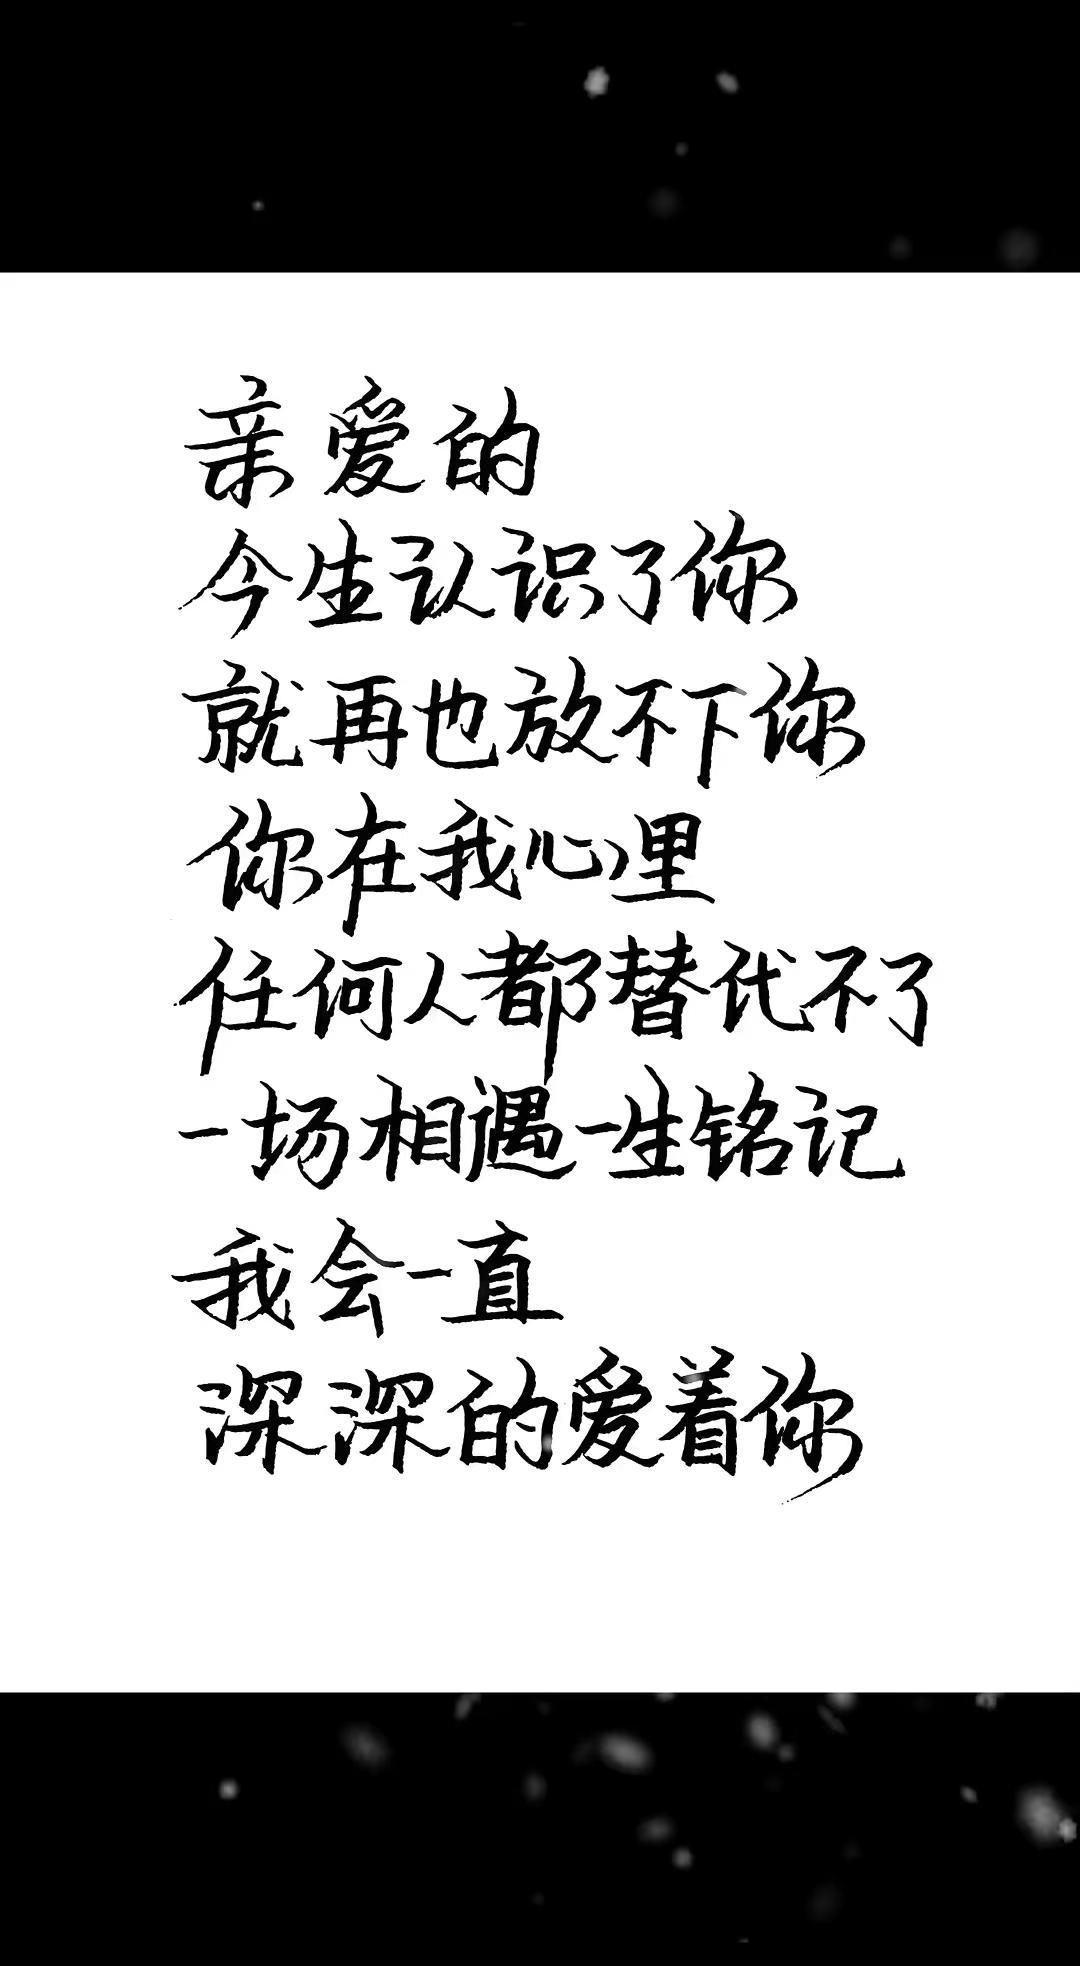 亲爱的
今生认识了你
就再也放不下你
你在我心里
任何人都替代不了
一场相遇一生铭记
我会一直
深深的爱着你